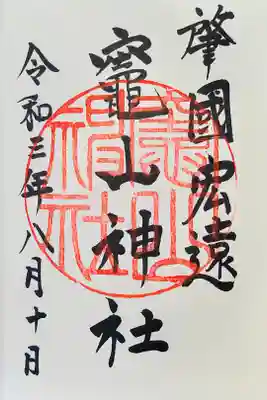 肇國宏遠
竈山神社
令和三年八月十日
竈山神社